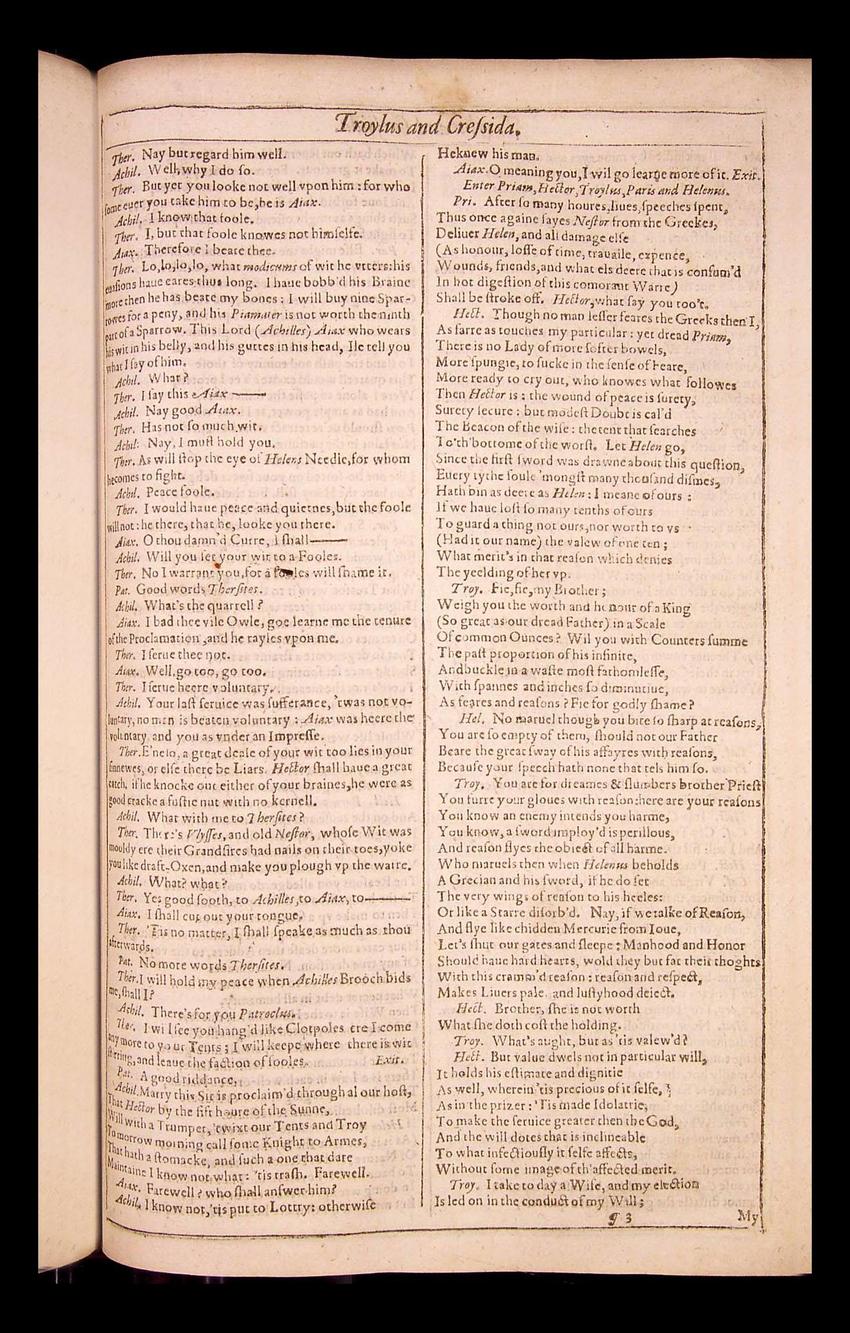 Troylus and Cressida.
Ther. Nay but regard him well.
Achil. Well, why I do so.
Ther. But yet you looke not well vpon him: for who
some euer you take him to be, he is Aiax.
Achil. I know that foole.
Ther. I, but that foole knowes not himselfe.
Aiax. Therefore I beate thee.
Ther. Lo, lo, lo, lo, what modicums of wit he vtters: his
euasions haue eares thus long. I haue bobb'd his Braine
more then he has beate my bones: I will buy nine Spar-
rowes for a peny, and his Piamater is not worth the ninth
part of a Sparrow. This Lord (Achilles) Aiax who wears
his wit in his belly, and his guttes in his head, Ile tell you
what I say of him.
Achil. What?
Ther. I say this Aiax ——
Achil. Nay good Aiax.
Ther. Has not so much wit.
Achil. Nay, I must hold you.
Ther. As will stop the eye of Helens Needle, for whom
he comes to fight.
Achil. Peace foole.
Ther. I would haue peace and quietnes, but the foole
will not: he there, that he, looke you there.
Aiax. O thou damn'd Curre, I shall——
Achil. Will you set your wit to a Fooles.
Ther. No I warrant you, for a fooles will shame it.
Pat. Good words Thersites.
Achil. What's the quarrell?
Aiax. I bad thee vile Owle, goe learne me the tenure
of the Proclamation, and he rayles vpon me.
Ther. I serue thee not.
Aiax. Well, go too, go too.
Ther. I serue heere voluntary.
Achil. Your last seruice was sufferance, 'twas not vo-
luntary, no man is beaten voluntary: Aiax was heere the
voluntary, and you as vnder an Impresse.
Ther. E'neso, a great deale of your wit too lies in your
sinnewes, or else there be Liars. Hector shall haue a great
catch, if he knocke out either of your braines, he were as
good cracke a fustie nut with no kernell.
Achil. What with me to Thersites?
Ther. Ther's Vlysses, and old Nestor, whose Wit was
mouldy ere their Grandsires had nails on their toes, yoke
you like draft-Oxen, and make you plough vp the warre.
Achil. What? what?
Ther. Yes good sooth, to Achilles, to Aiax, to——
Aiax. I shall cut out your tongue.
Ther. 'Tis no matter, I shall speake as much as thou
afterwards.
Pat. No more words Thersites.
Ther. I will hold my peace when Achilles Brooch bids
me, shall I?
Achil. There's for you Patroclus.
Ther. I wil see you hang'd like Clotpoles ere I come
any more to your Tents; I will keepe where there is wit
stirring, and leaue the faction of fooles. Exit.
Pat. A good riddance.
Achil. Marry this Sir is proclaim'd through al our host,
That Hector by the fift houre of the Sunne,
Will with a Trumpet, 'twixt our Tents and Troy
Tomorrow morning call some Knight to Armes,
That hath a stomacke, and such a one that dare
Maintaine I know not what: 'tis trash. Farewell.
Aiax. Farewell? who shall answer him?
Achil. I know not, 'tis put to Lottry: otherwise
He knew his man.
Aiax. O meaning you, I wil go learne more of it. Exit.
Enter Priam, Hector, Troylus, Paris and Helenus.
Pri. After so many houres, liues, speeches spent,
Thus once againe sayes Nestor from the Greekes,
Deliuer Helen, and all damage else
(As honour, losse of time, trauaile, expence,
Wounds, friends, and what els deere that is consum'd
In hot digestion of this comorant Warre)
Shall be stroke off. Hector, what say you too't.
Hect. Though no man lesser feares the Greeks then I,
As farre as touches my particular: yet dread Priam,
There is no Lady of more softer bowels,
More spungie, to sucke in the sense of Feare,
More ready to cry out, who knowes what followes
Then Hector is: the wound of peace is surety,
Surety secure: but modest Doubt is cal'd
The Beacon of the wise: the tent that searches
To'th'bottome of the worst. Let Helen go,
Since the first sword was drawne about this question,
Euery tythe soule 'mongst many thousand dismes,
Hath bin as deere as Helen: I meane of ours:
If we haue lost so many tenths of ours
To guard a thing not ours, nor worth to vs
(Had it our name) the valew of one ten;
What merit's in that reason which denies
The yeelding of her vp.
Troy. Fie, fie, my Brother;
Weigh you the worth and honour of a King
(So great as our dread Father) in a Scale
Of common Ounces? Wil you with Counters summe
The past proportion of his infinite,
And buckle in a waste most fathomlesse,
With spannes and inches so diminutiue,
As feares and reasons? Fie for godly shame?
Hel. No maruel though you bite so sharp at reasons,
You are so empty of them, should not our Father
Beare the great sway of his affayres with reasons,
Because your speech hath none that tels him so.
Troy. You are for dreames & slumbers brother Priest
You furre your gloues with reason: here are your reasons
You know an enemy intends you harme,
You know, a sword imploy'd is perillous,
And reason flyes the obiect of all harme.
Who maruels then when Helenus beholds
A Grecian and his sword, if he do set
The very wings of reason to his heeles:
Or like a Starre disorb'd. Nay, if we talke of Reason,
And flye like chidden Mercurie from Ioue,
Let's shut our gates and sleepe: Manhood and Honor
Should haue hard hearts, wold they but fat their thoghts
With this cramm'd reason: reason and respect,
Makes Liuers pale, and lustyhood deiect.
Hect. Brother, she is not worth
What she doth cost the holding.
Troy. What's aught, but as 'tis valew'd?
Hect. But value dwels not in particular will,
It holds his estimate and dignitie
As well, wherein 'tis precious of it selfe,
As in the prizer: 'Tis made Idolatrie,
To make the seruice greater then the God,
And the will dotes that is inclineable
To what infectiously it selfe affects,
Without some image of th'affected merit.
Troy. I take to day a Wife, and my election
Is led on in the conduct of my Will;
¶ 3 My